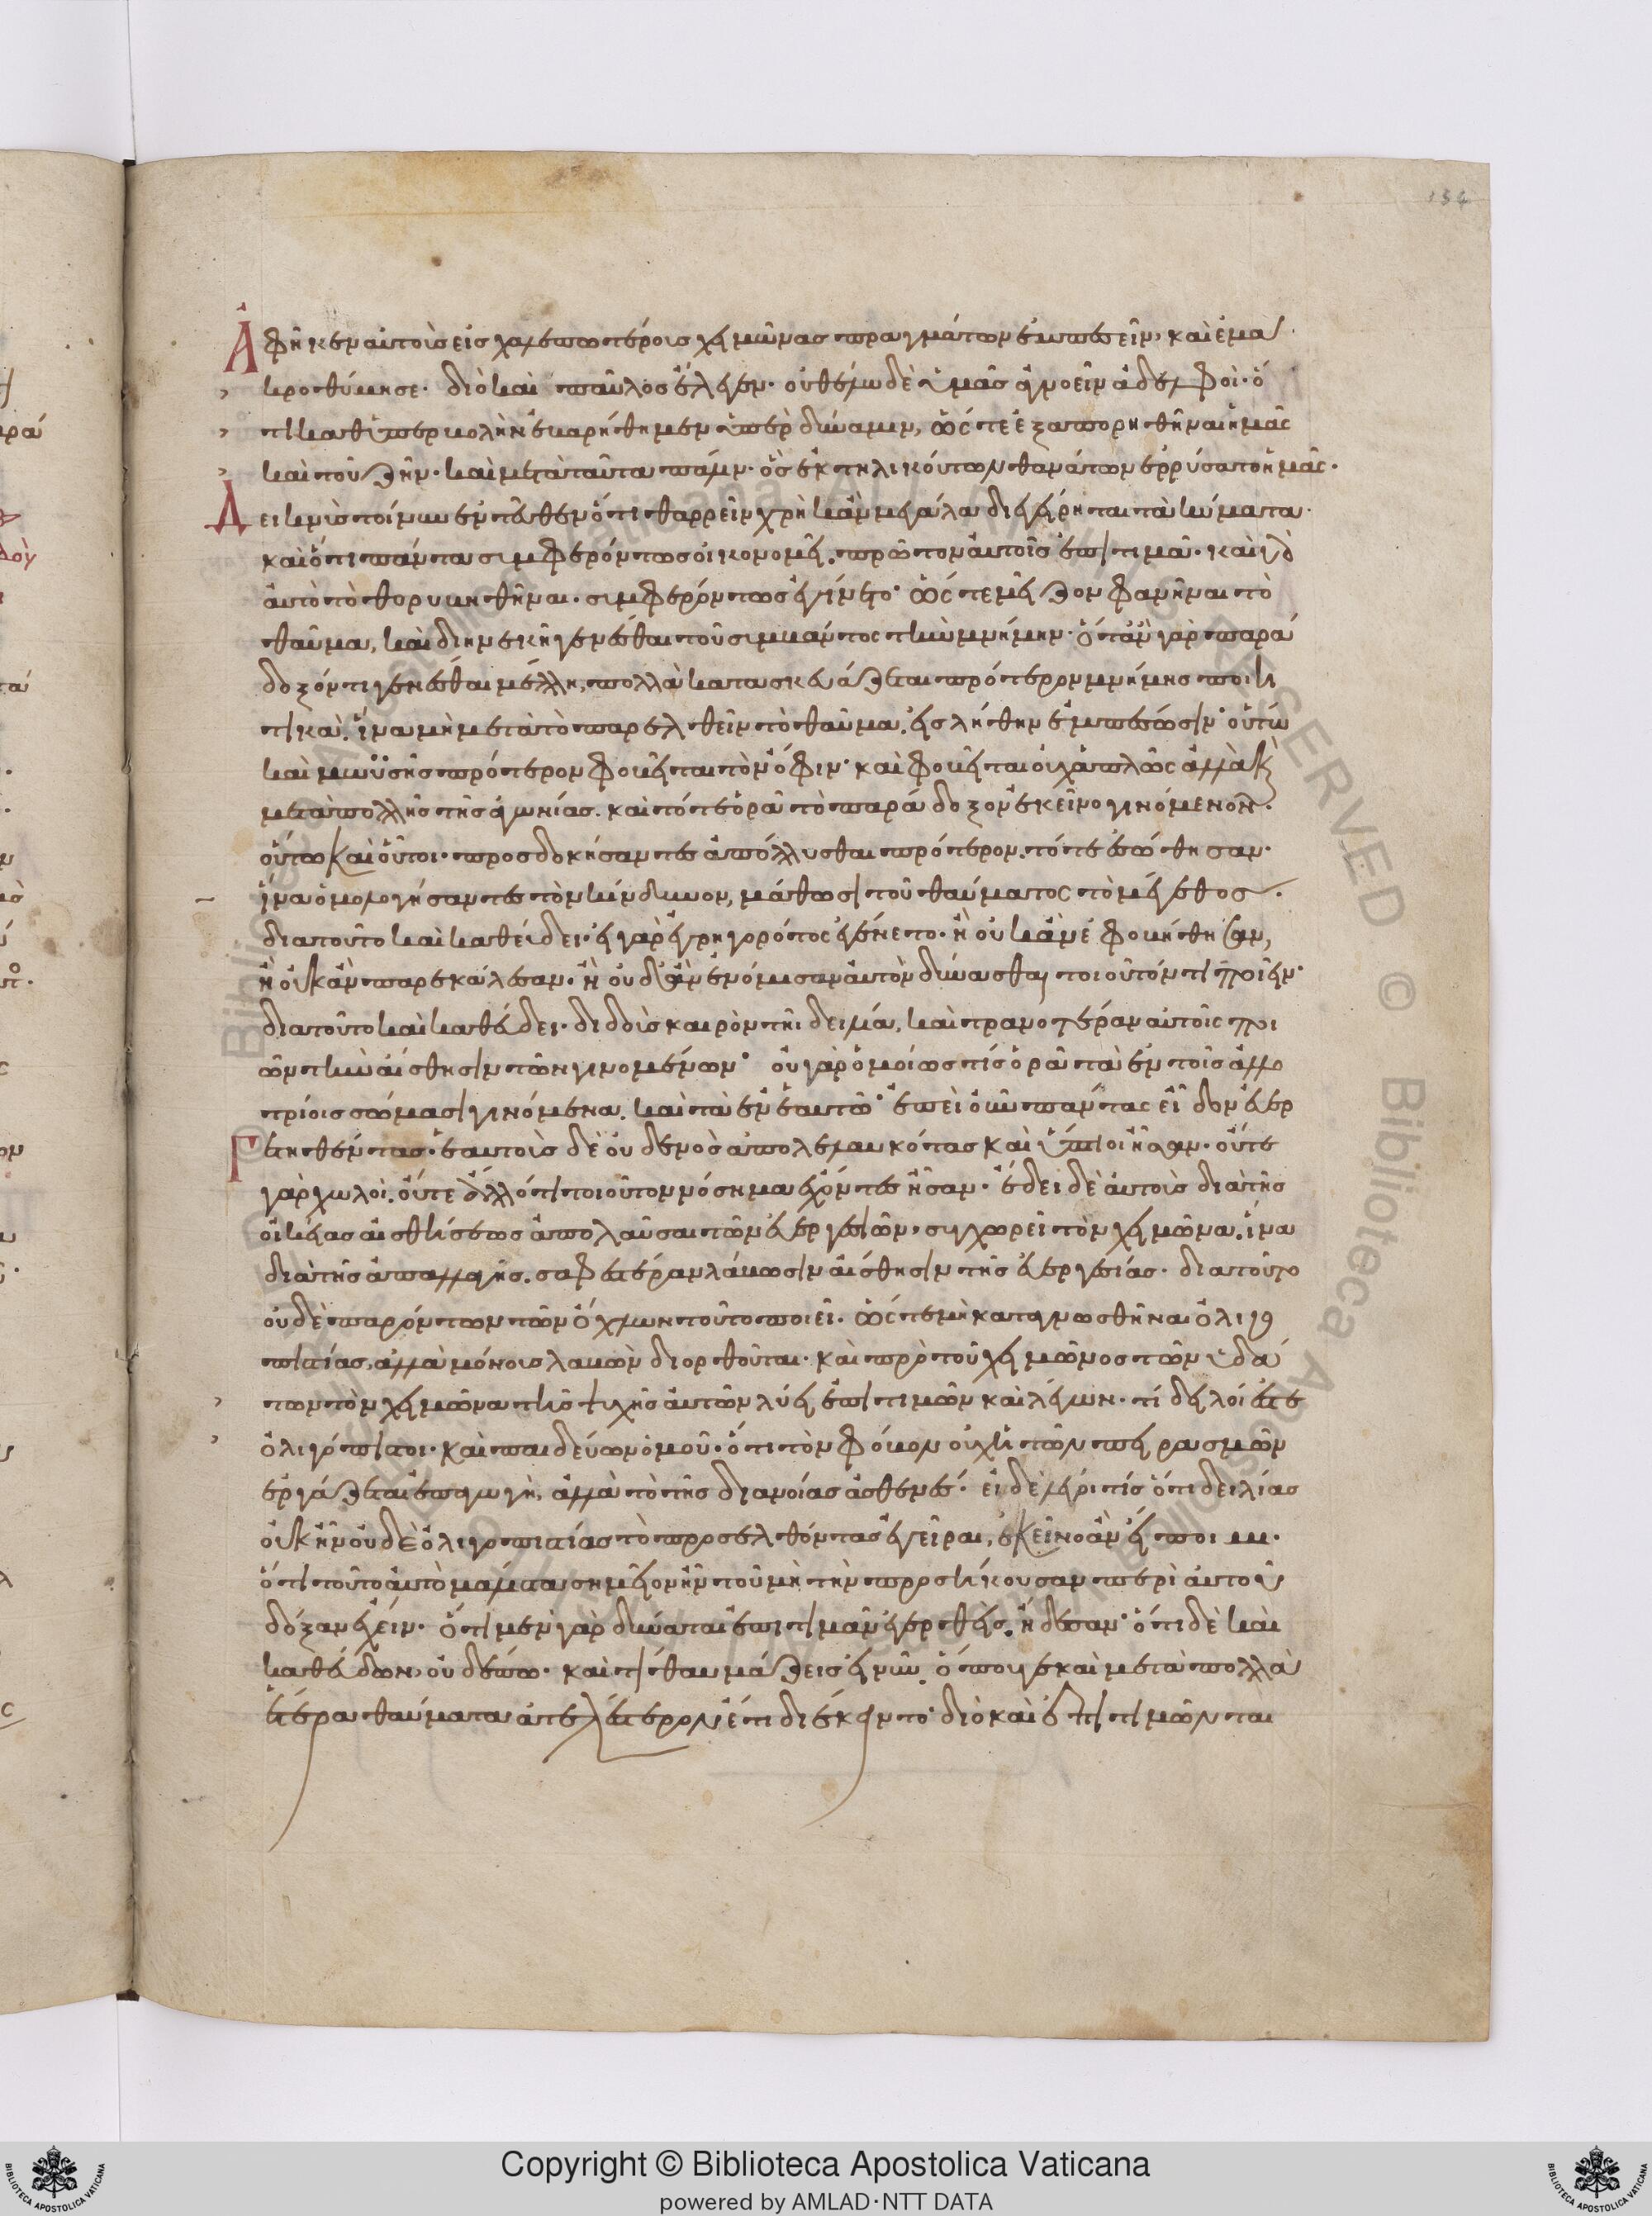 134
Ἀφῆκεν αὐτοὺς εἰς χαλεπωτέρους χειμῶνας πραγμάτων ἐμπεσεῖν, καὶ ἐμα
κροθύμησε· διὸ καὶ παῦλος ἔλεγεν· οὐ θέλω δὲ ὑμᾶς ἀγνοεῖν ἀδελφοί· ὅ
τι καθ' ὑπερβολὴν ἐβαρήθημεν ὑπὲρ δύναμιν, ὥστε ἐξαπορηθῆναι ἡμᾶς
καὶ τοῦ ζῆν· καὶ μετὰ ταῦτα πάλιν· ὃς ἐκ τηλικούτων θανάτων ἐρρύσατο ἡμᾶς·
Δεικνὺς τοίνυν ἐντεῦθεν ὅτι θαρρεῖν χρὴ κἂν μεγάλα διεγείρηται τὰ κύματα·
καὶ ὅτι πάντα συμφερόντως οἰκονομεῖ, πρῶτον αὐτοῖς ἐπιτιμᾶ· καὶ γὰρ
αὐτὸ τὸ θορυβηθῆναι· συμφερόντως ἐγίνετο· ὥστε μεῖζον φανῆναι τὸ
θαῦμα, καὶ διηνεκῆ γενέσθαι τοῦ συμβάντος τὴν μνήμην· ὅταν γὰρ παρά
δοξόν τι γενέσθαι μέλλη, πολλὰ κατασκευάζεται πρότερον μνήμης ποιη
τικά· ἵνα μὴ μετὰ τὸ παρελθεῖν τὸ θαῦμα, εἰς λήθην ἐμπέσωσιν· οὕτω
καὶ μωϋσῆς πρότερον φοβεῖται τὸν ὄφιν· καὶ φοβεῖται οὐχ ἁπλῶς ἀλλὰ καὶ
μετὰ πολλῆς τῆς ἀγωνίας· καὶ τότε ὁρᾶ τὸ παράδοξον ἐκεῖνο γινόμενον·
οὕτω καὶ οὗτοι· προσδοκήσαντες ἀπόλλυσθαι πρότερον, τότε ἐσώθησαν·
ἵνα ὁμολογήσαντες τὸν κίνδυνον, μάθωσι τοῦ θαύματος τὸ μέγεθος·
διατοῦτο καὶ καθεύδει· εἰ γὰρ ἐγρηγορότος ἐγένετο· ἢ οὐκ ἂν ἐφοβήθησαν,
ἢ οὐκ ἂν παρεκάλεσαν· ἢ οὐδ' ἂν ἐνόμισαν αὐτὸν δύνασθαι τοιοῦτόν τι ποιεῖν·
διατοῦτο καὶ καθεύδει· διδοὺς καιρὸν τῆ δειλία, καὶ τρανοτέραν αὐτοῖς ποι
ῶν τὴν αἴσθησιν τῶν γινομένων· οὐ γὰρ ὁμοίως τίς ὁρᾶ τὰ ἐν τοῖς ἀλλο
τρίοις σώμασι γινόμενα, καὶ τὰ ἐν ἑαυτῶ· ἐπεὶ οὖν πάντας εἶδον εὐερ
γετηθέντας· ἑαυτοὺς δὲ οὐδενὸς ἀπολελαυκότας καὶ ὕπτιοι ἦσαν· οὔτε
γὰρ χωλοί, οὔτε ἄλλό τι τοιοῦτον νόσημα ἔχοντες ἦσαν· ἔδει δὲ αὐτοὺς διὰ τῆς
οἰκείας αἰσθήσεως ἀπολαῦσαι τῶν εὐεργεσιῶν, συγχωρεῖ τὸν χειμῶνα, ἵνα
διὰ τῆς ἀπαλλαγῆς, σαφεστέραν λάβωσιν αἴσθησιν τῆς εὐεργεσίας· διατοῦτο
οὐδὲ παρόντων τῶν ὄχλων τοῦτο ποιεῖ· ὥστε μὴ καταγνωσθῆναι ὀλιγο
πιστίας, ἀλλὰ μόνους λαβὼν διορθοῦται· καὶ πρὸ τοῦ χειμῶνος τῶν ὑδά
των τὸν χειμῶνα τῆς ψυχῆς αὐτῶν λύει ἐπιτιμῶν καὶ λέγων· τί δειλοί ἐστε
ὀλιγόπιστοι· καὶ παιδεύων ὁμοῦ· ὅτι τὸν φόβον οὐχ ἡ τῶν πειρασμῶν
ἐργάζεται ἐπαγωγὴ, ἀλλὰ τὸ τῆς διανοίας ἀσθενές· εἰ δὲ λέγοι τίς ὅτι δειλίας
οὐκ ἦν οὐδὲ ὀλιγοπιστίας τὸ προσελθόντας ἐγεῖραι, ἐκεῖνο ἂν εἴποιμι·
ὅτι τοῦτο αὐτὸ μάλιστα σημεῖον ἦν τοῦ μὴ τὴν προσήκουσαν περὶ αὐτοῦ
δόξαν ἔχειν· ὅτι μὲν γὰρ δύναται ἐπιτιμᾶν ἐγερθεὶς, ἤδεσαν· ὅτι δὲ καὶ
καθεύδων, οὐδέπω· καὶ τί θαυμάζεις εἰ νῦν, ὅπου γε καὶ μετὰ πολλὰ
ἕτερα θαύματα ἀτελέστερον ἔτι διέκειντο· διὸ καὶ ἐπιτιμῶνται
Copyright © Biblioteca Apostolica Vaticana
powered by AMLAD·NTT DATA